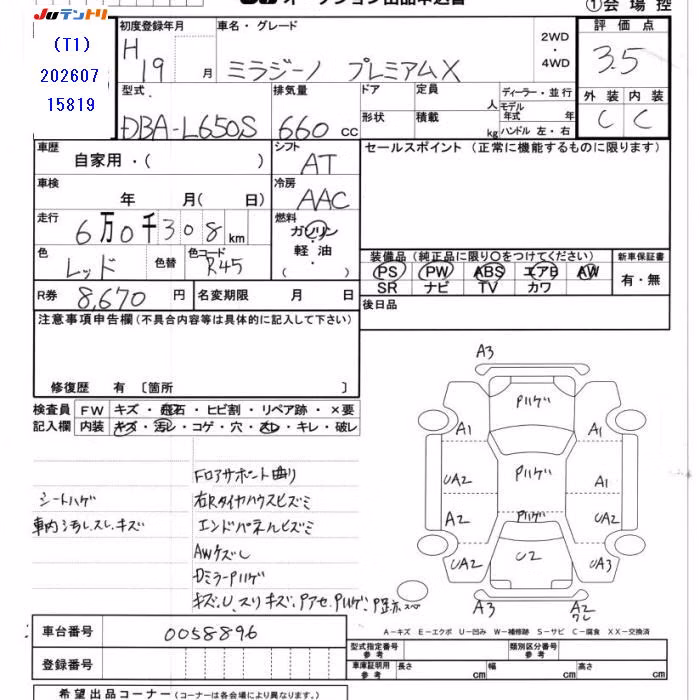 JUテントリ
(T1)
202607
15819
オークション出品申込書
①会場控
初度登録年月
H
19 月
車名・グレード
ミラジーノ プレミアムX
2WD
・
4WD
評価点
3.5
外装 内装
C C
型式
DBA-L650S
排気量
660 cc
ドア
定員
人
形状
積載
kg
ディーラー・並行
モデル年式 年
ハンドル 左・右
車歴
自家用・( )
シフト
AT
セールスポイント (正常に機能するものに限ります)
車検
年 月( 日)
冷房
AAC
走行
6万0千308km
燃料
ガソリン
・
軽油
・
( )
色
レッド
色替
色コード
R45
装備品(純正品に限り〇をつけてください)
PS PW ABS エアB AW
SR ナビ TV カワ
新車保証書
有・無
R券 8,670 円
名変期限 月 日
後日品
注意事項申告欄(不具合内容等は具体的に記入して下さい)
修復歴 有〔箇所 〕
検査員記入欄
FW キズ・飛石・ヒビ割・リペア跡・×要
内装 キズ・汚レ・コゲ・穴・スレ・キレ・破レ
シートハゲ
車内汚レ、スレ、キズ
Fロアサポート曲り
右Rタイヤハウスヒズミ
エンドパネルヒズミ
AWケズレ
DミラーPハゲ
キズ、U、スリキズ、Pアセ、Pハゲ、P
A3
Pハゲ
A1 A1
UA2 Pハゲ A1
A2 Pハゲ UA2
UA2 U2 UA3
スペア
A3 A2
ワレ
車台番号 0058896
登録番号
A-キズ E-エクボ U-凹み W-補修跡 S-サビ C-腐食 XX-交換済
型式指定番号
参考
類別区分番号
参考
車庫証明用
参考
長さ cm 幅 cm 高さ cm
希望出品コーナー(コーナーは各会場により異なります。)